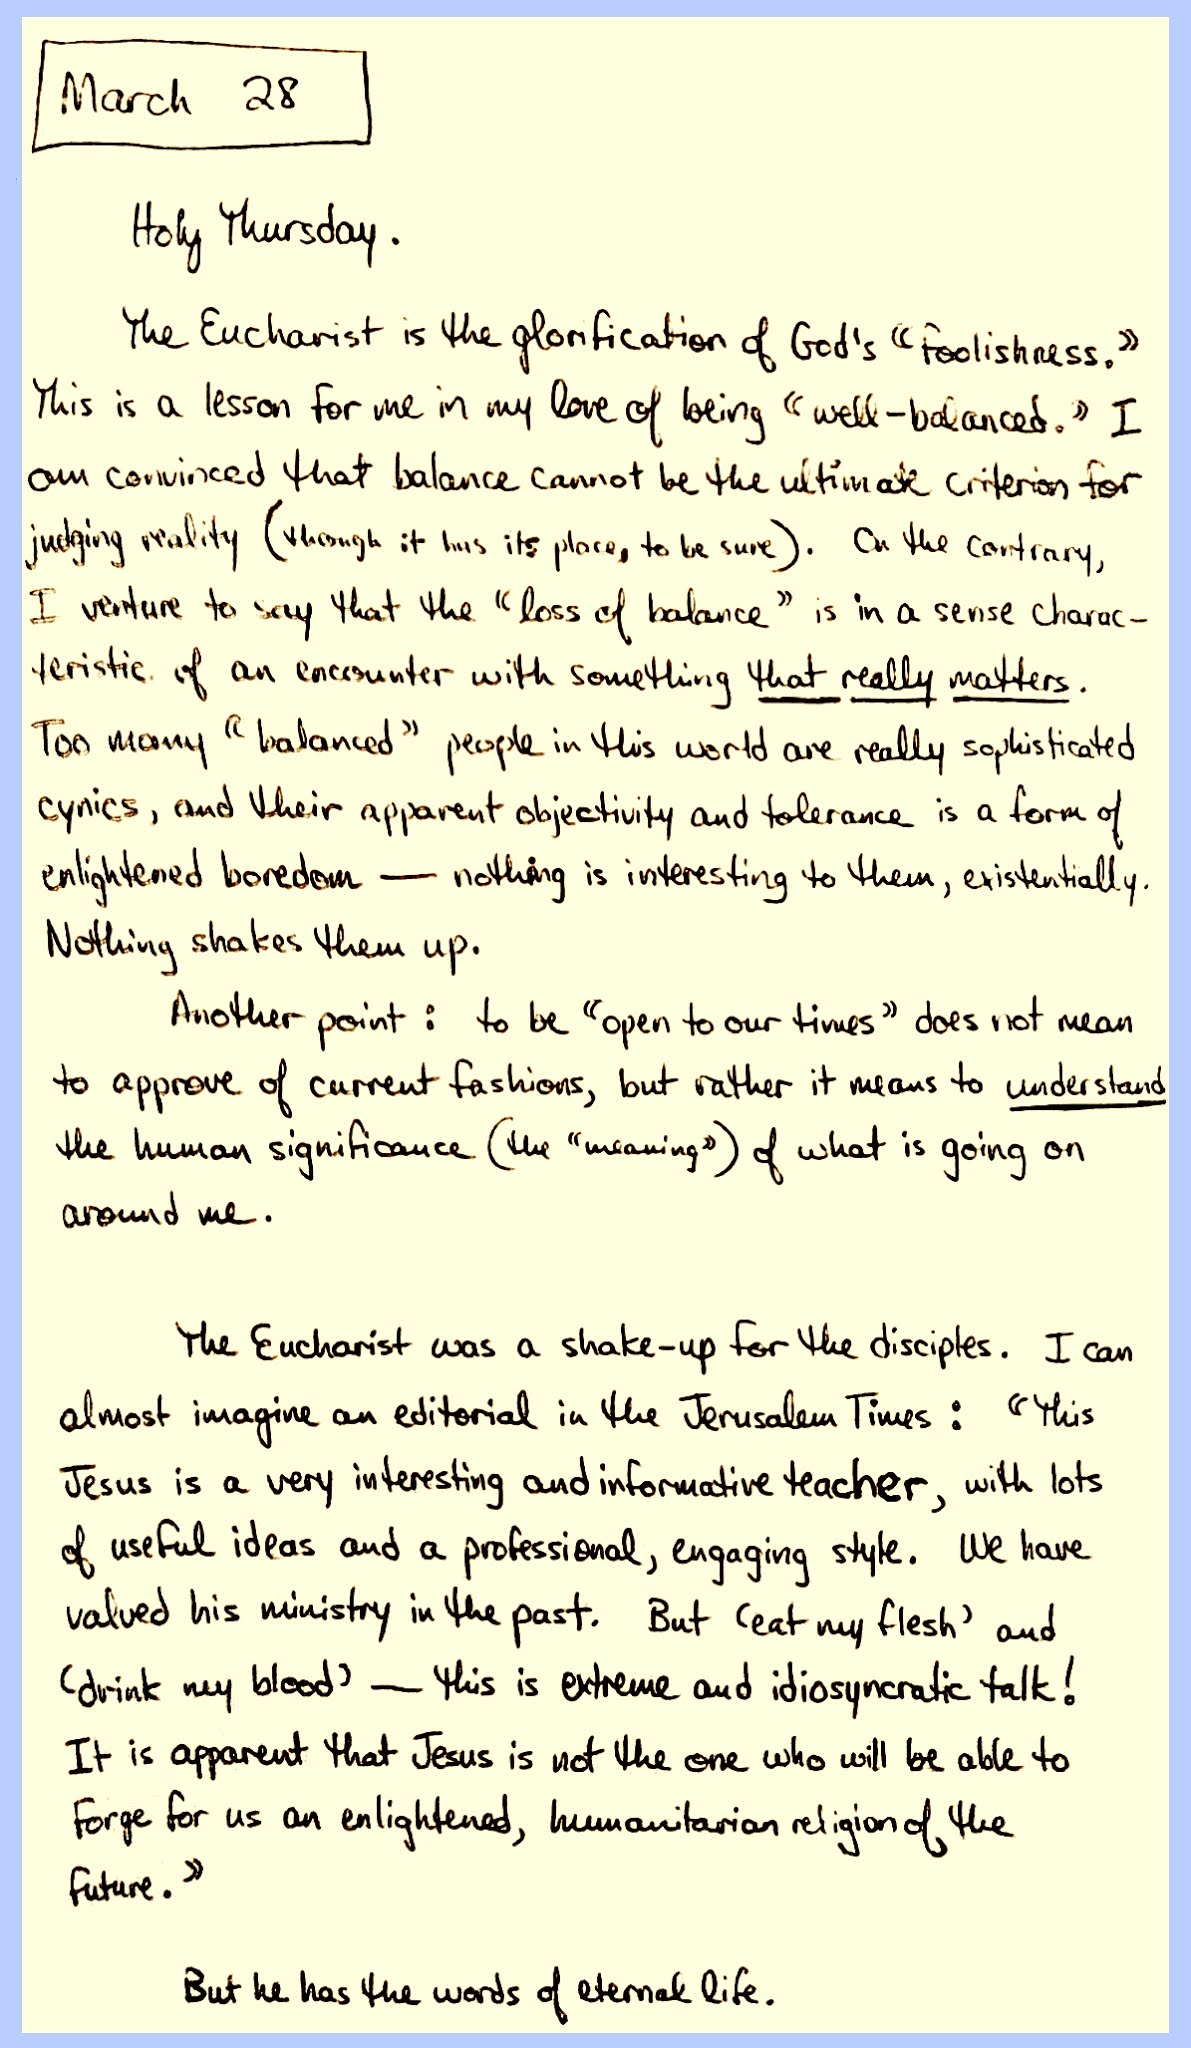 March 28
Holy Thursday.
The Eucharist is the glorification of God's "foolishness."
This is a lesson for me in my love of being "well-balanced." I
am convinced that balance cannot be the ultimate criterion for
judging reality (though it has its place, to be sure). On the contrary,
I venture to say that the "loss of balance" is in a sense charac-
teristic of an encounter with something that really matters.
Too many "balanced" people in this world are really sophisticated
cynics, and their apparent objectivity and tolerance is a form of
enlightened boredom — nothing is interesting to them, existentially.
Nothing shakes them up.
Another point: to be "open to our times" does not mean
to approve of current fashions, but rather it means to understand
the human significance (the "meaning") of what is going on
around me.
The Eucharist was a shake-up for the disciples. I can
almost imagine an editorial in the Jerusalem Times: "This
Jesus is a very interesting and informative teacher, with lots
of useful ideas and a professional, engaging style. We have
valued his ministry in the past. But 'eat my flesh' and
'drink my blood' — this is extreme and idiosyncratic talk!
It is apparent that Jesus is not the one who will be able to
forge for us an enlightened, humanitarian religion of the
future."
But he has the words of eternal life.